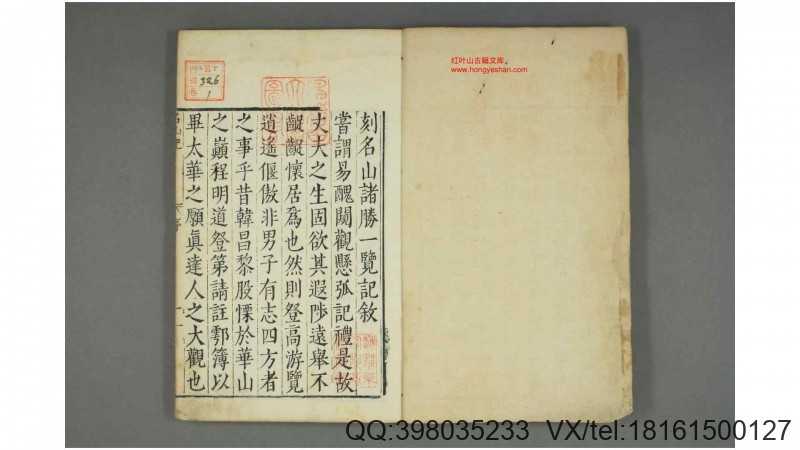 刻名山諸勝一覽記敘
嘗謂易醜闚觀懸弧記禮是故
丈夫之生固欲其遐陟遠舉不
齷齪懷居爲也然則登高游覽
逍遙偃傲非男子有志四方者
之事乎昔韓昌黎股慄於華山
之巔程明道登第請註鄠簿以
畢太華之願眞達人之大觀也
326
1
红叶山古籍文库
www.hongyeshan.com
QQ:398035233 VX/tel:18161500127